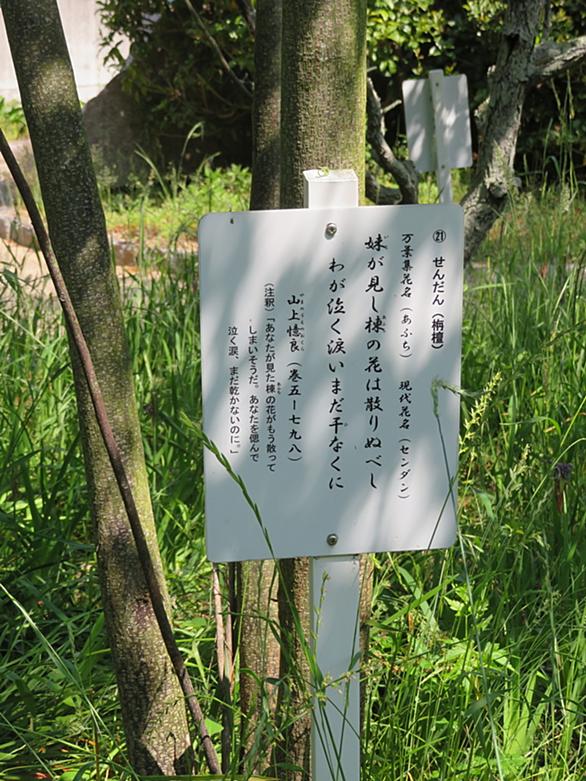 ㉑ せんだん（栴檀）
万葉集花名（あふち） 現代花名（センダン）
妹が見し楝の花は散りぬべし
わが泣く涙いまだ干なくに
山上憶良（巻五ー七九八）
（注釈）「あなたが見た楝の花がもう散って
しまいそうだ。あなたを偲んで
泣く涙、まだ乾かないのに。」